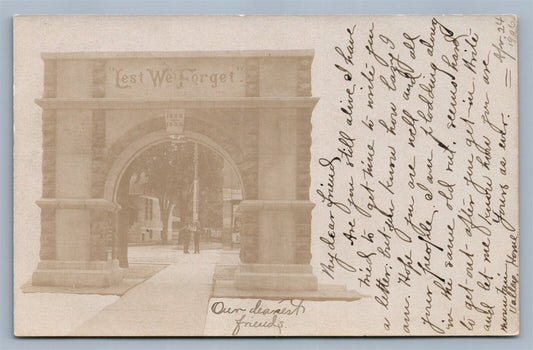 "Lest We Forget"
Apr 24
1906
My dear friend
Are you still alive I have
tried to get time to write you
a letter but you know how lazy I
am. Hope you are well and all
your people. I am plodding along
in the same old rut. seems hard
to get out after you get in. Write
and let me know how you are
Yours as ever.
mountain
Valley Home
Our dearest
friends